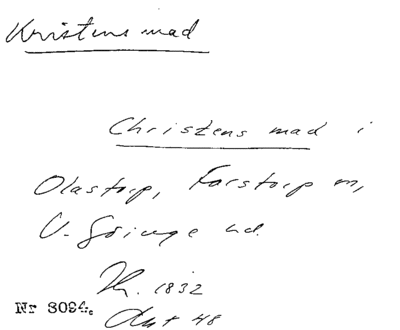 Kristens mad
Christens mad i
Olastorp, Farstorp sn,
V. Göinge hd.
1832
Nr 8094.
Akt 48